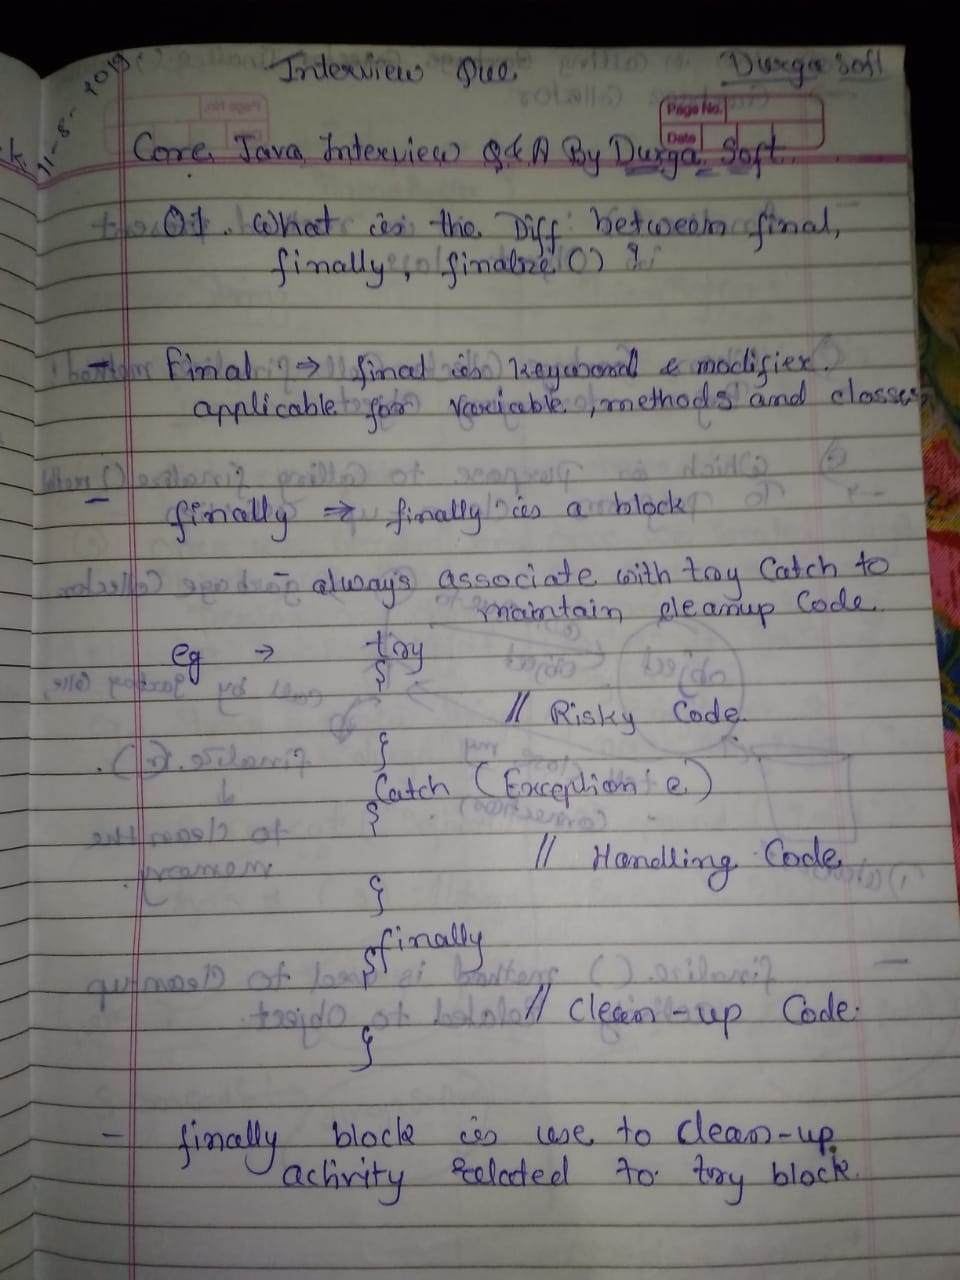 11-8-2019
Interview Que. Durga Soft
Page No.
Date
Core Java Interview Q & A By Durga Soft.
Q1. What is the Diff. between final,
finally, finalize() ?
- Final => final is keyword & modifier.
applicable for variable, methods and classes
- finally => finally is a block
- always associate with try Catch to
maintain cleanup Code.
eg → try
{
// Risky Code.
}
Catch (Exception e)
{
// Handling Code
}
finally
{
// Clean-up Code.
}
- finally block is use to clean-up
activity related to try block.